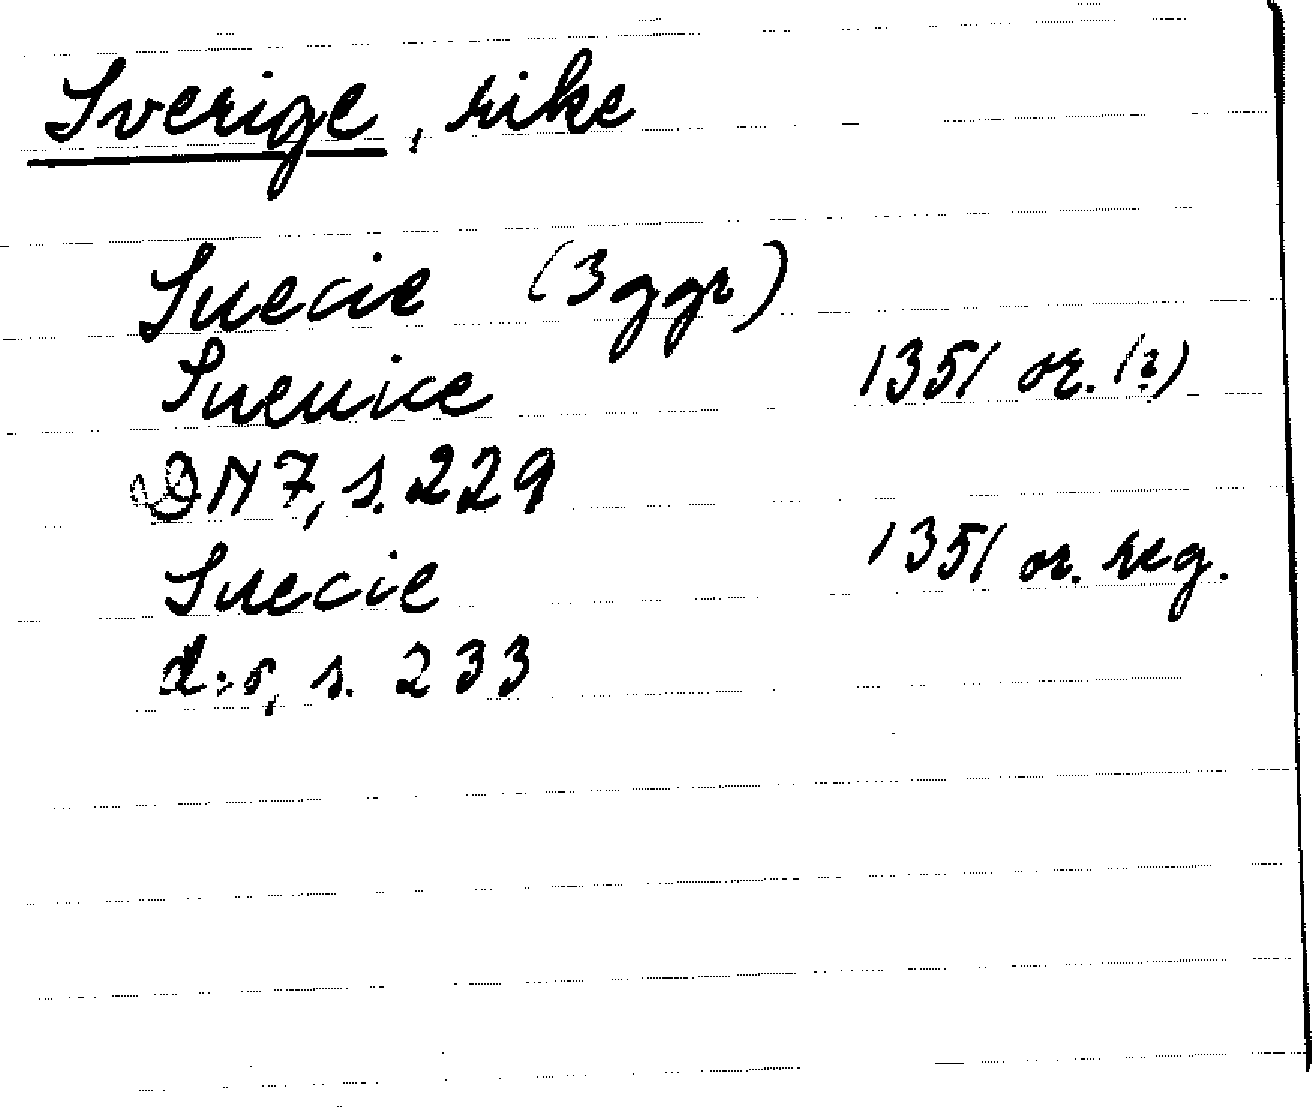 Sverige, rike
Suecie (3 ggr)
Sueuice 1351 or. (?)
DN 7, s. 229
Suecie 1351 or. reg.
d:o, s. 233